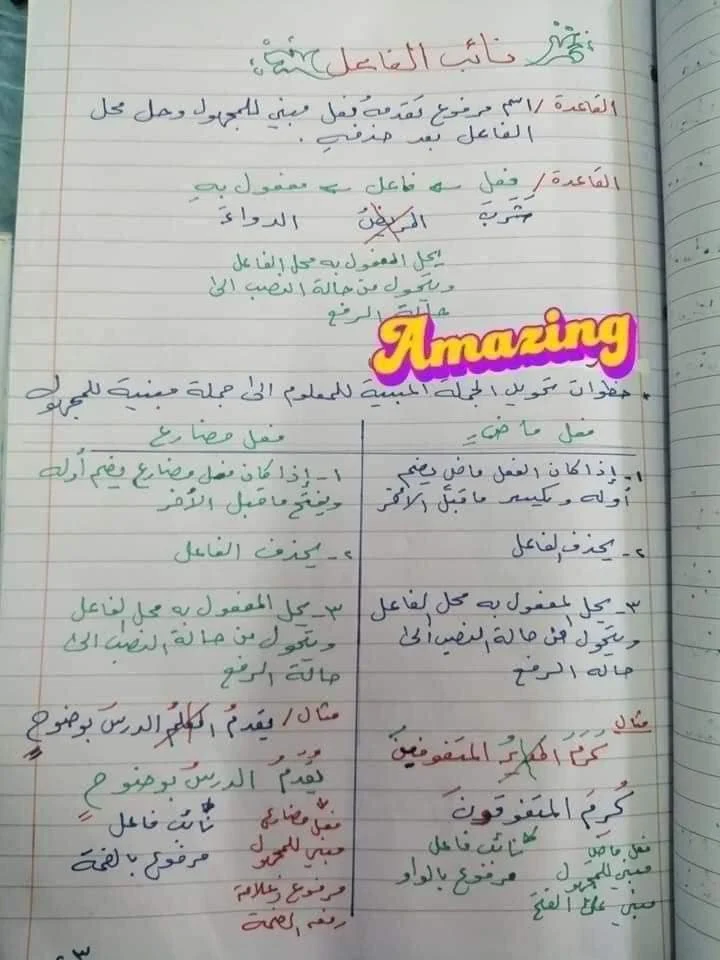 نائب الفاعل
القاعدة / اسم مرفوع تقدمهُ فعل مبني للمجهول وحل محل
الفاعل بعد حذفهِ .
القاعدة / فعل ← فاعل ← مفعول بهِ
شَرِبَ المريضُ الدواءَ
يحل المفعول به محل الفاعل
ويتحول من حالة النصب الى
حالة الرفع
Amazing
خطوات تحويل الجملة المبنية للمعلوم الى جملة مبنية للمجهول
فعل ماضي
١- إذا كان الفعل ماضي يضم
أوله ويكسر ما قبل الأخر
٢- يحذف الفاعل
٣- يحل المفعول به محل الفاعل
ويتحول من حالة النصب الى
حالة الرفع
مثال
كَرَمَ المديرُ المتفوقينَ
كُرِمَ المتفوقونَ
فعل ماضي
مبني للمجهول
مبني على الفتح
نائب فاعل
مرفوع بالواو
فعل مضارع
١- إذا كان فعل مضارع يضم أوله
ويفتح ما قبل الأخر
٢- يحذف الفاعل
٣- يحل المفعول به محل الفاعل
ويتحول من حالة النصب الى
حالة الرفع
مثال / يقدمُ المعلمُ الدرسَ بوضوحٍ
يُقدَمُ الدرسُ بوضوحٍ
فعل مضارع
مبني للمجهول
مرفوع وعلامة
رفعه الضمة
نائب فاعل
مرفوع بالضمة